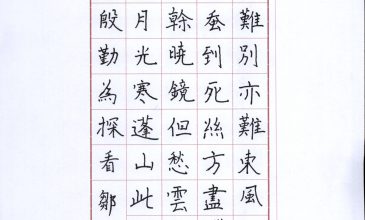 難別亦難東風
蚕到死絲方盡
乾曉鏡但愁雲
月光寒蓬山此
殷勤為探看鄒